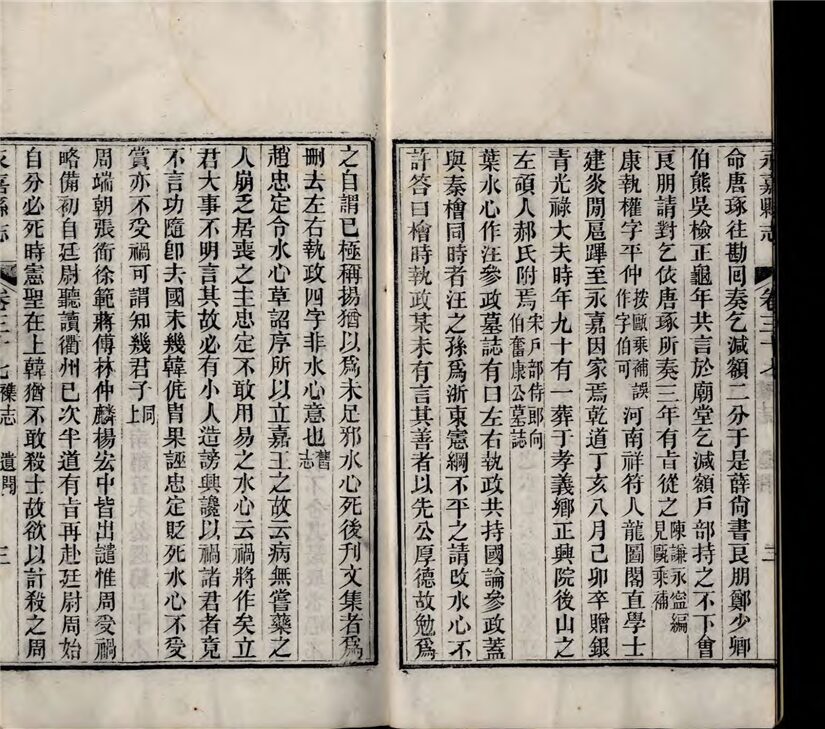 永嘉縣志 卷三十七
命唐琢往勘囘奏乞減額二分于是薛尙書良朋鄭少卿
伯熊吳檢正龜年共言於廟堂乞減額戶部持之不下會
良朋請對乞依唐琢所奏三年有㫖從之陳謙永寍編見甌乘補
康執權字平仲按甌乘補誤作字伯可河南祥符人龍圖閣直學士
建炎閒扈蹕至永嘉因家焉乾道丁亥八月己卯卒贈銀
青光祿大夫時年九十有一葬于孝義鄕正興院後山之
左碩人郝氏附焉宋戸部侍郎向伯奮康公墓誌
葉水心作汪參政墓誌有曰左右執政共持國論參政蓋
與秦檜同時者汪之孫爲浙東憲綱不平之請改水心不
許答曰檜時執政某未有言其善者以先公厚德故勉爲
之自謂已極稱揚猶以爲未足邪水心死後刊文集者爲
刪去左右執政四字非水心意也舊志
趙忠定令水心草詔序所以立嘉王之故云病無嘗藥之
人崩乏居喪之主忠定不敢用易之水心云禍將作矣立
君大事不明言其故必有小人造謗興讒以禍諸君者竟
不言功隨卽去國未幾韓侂冑果誣忠定貶死水心不受
賞亦不受禍可謂知幾君子同上
周端朝張衜徐範蔣傅林仲麟楊宏中皆出譴惟周受禍
略備初自廷尉聽讀衢州已次半道有㫖再赴廷尉周始
自分必死時憲聖在上韓猶不敢殺士故欲以計殺之周
永嘉縣志 卷三十七 襍志 遺聞 三